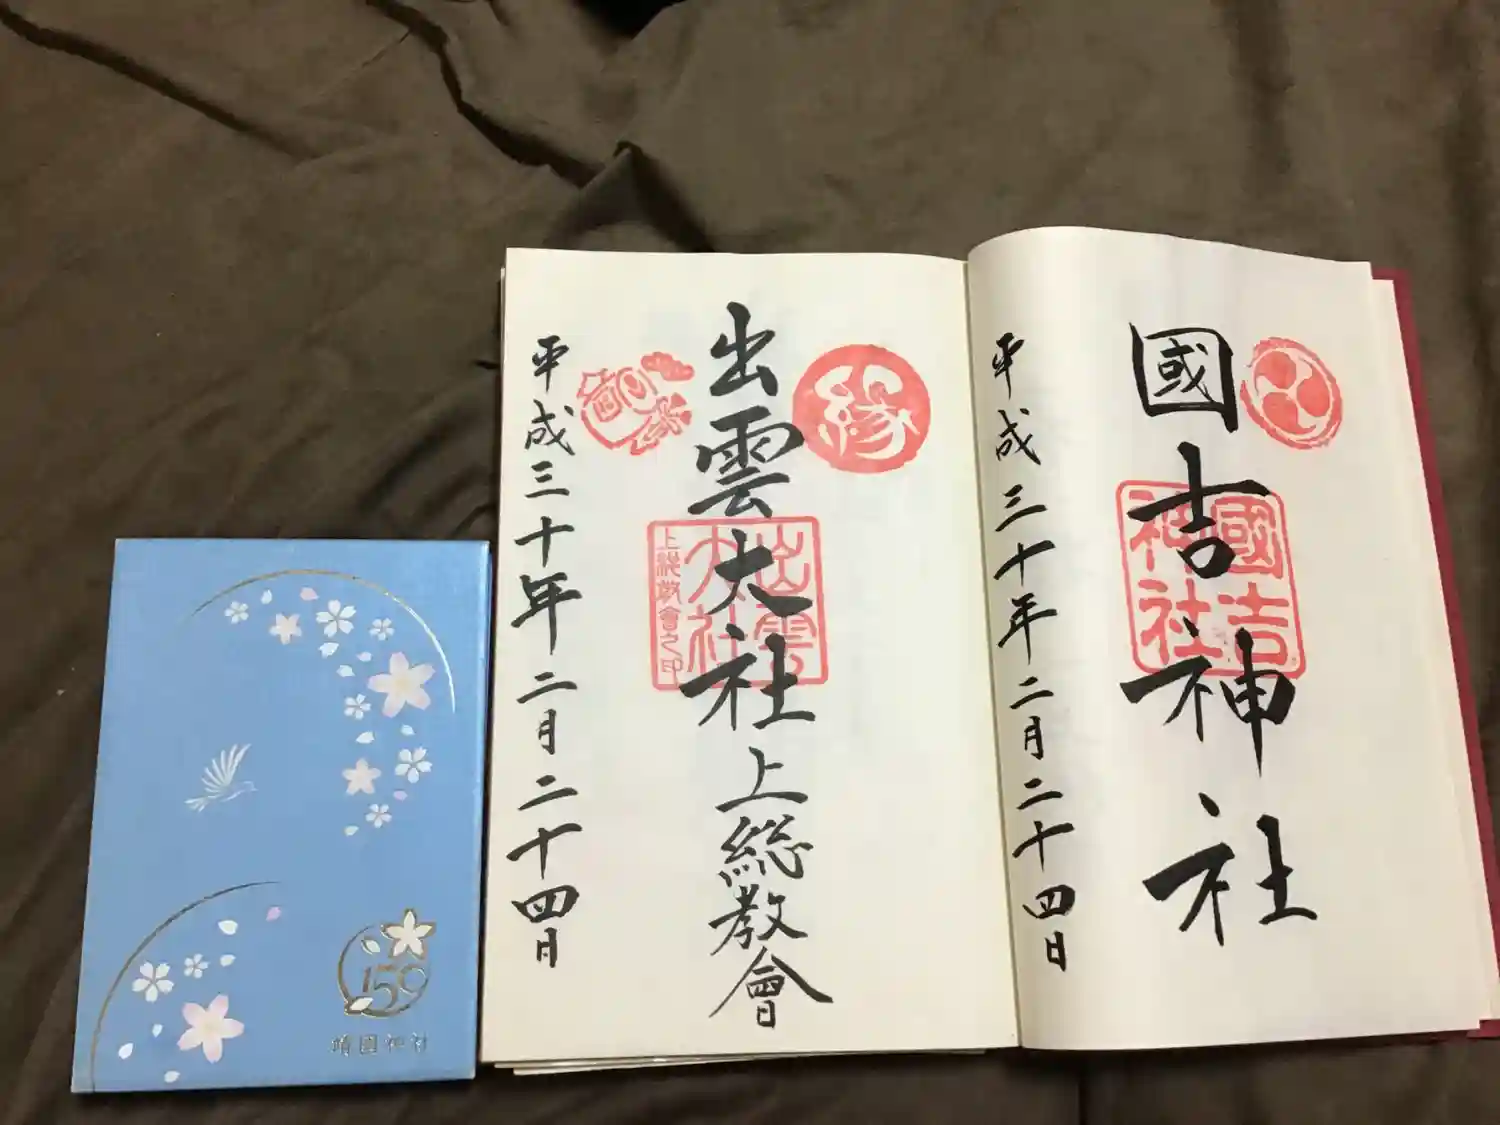 國吉神社
國吉
神社
平成三十年二月二十四日
縁
出雲大社上総教會
出雲
大社
上総教會之印
平成三十年二月二十四日
150
靖國神社